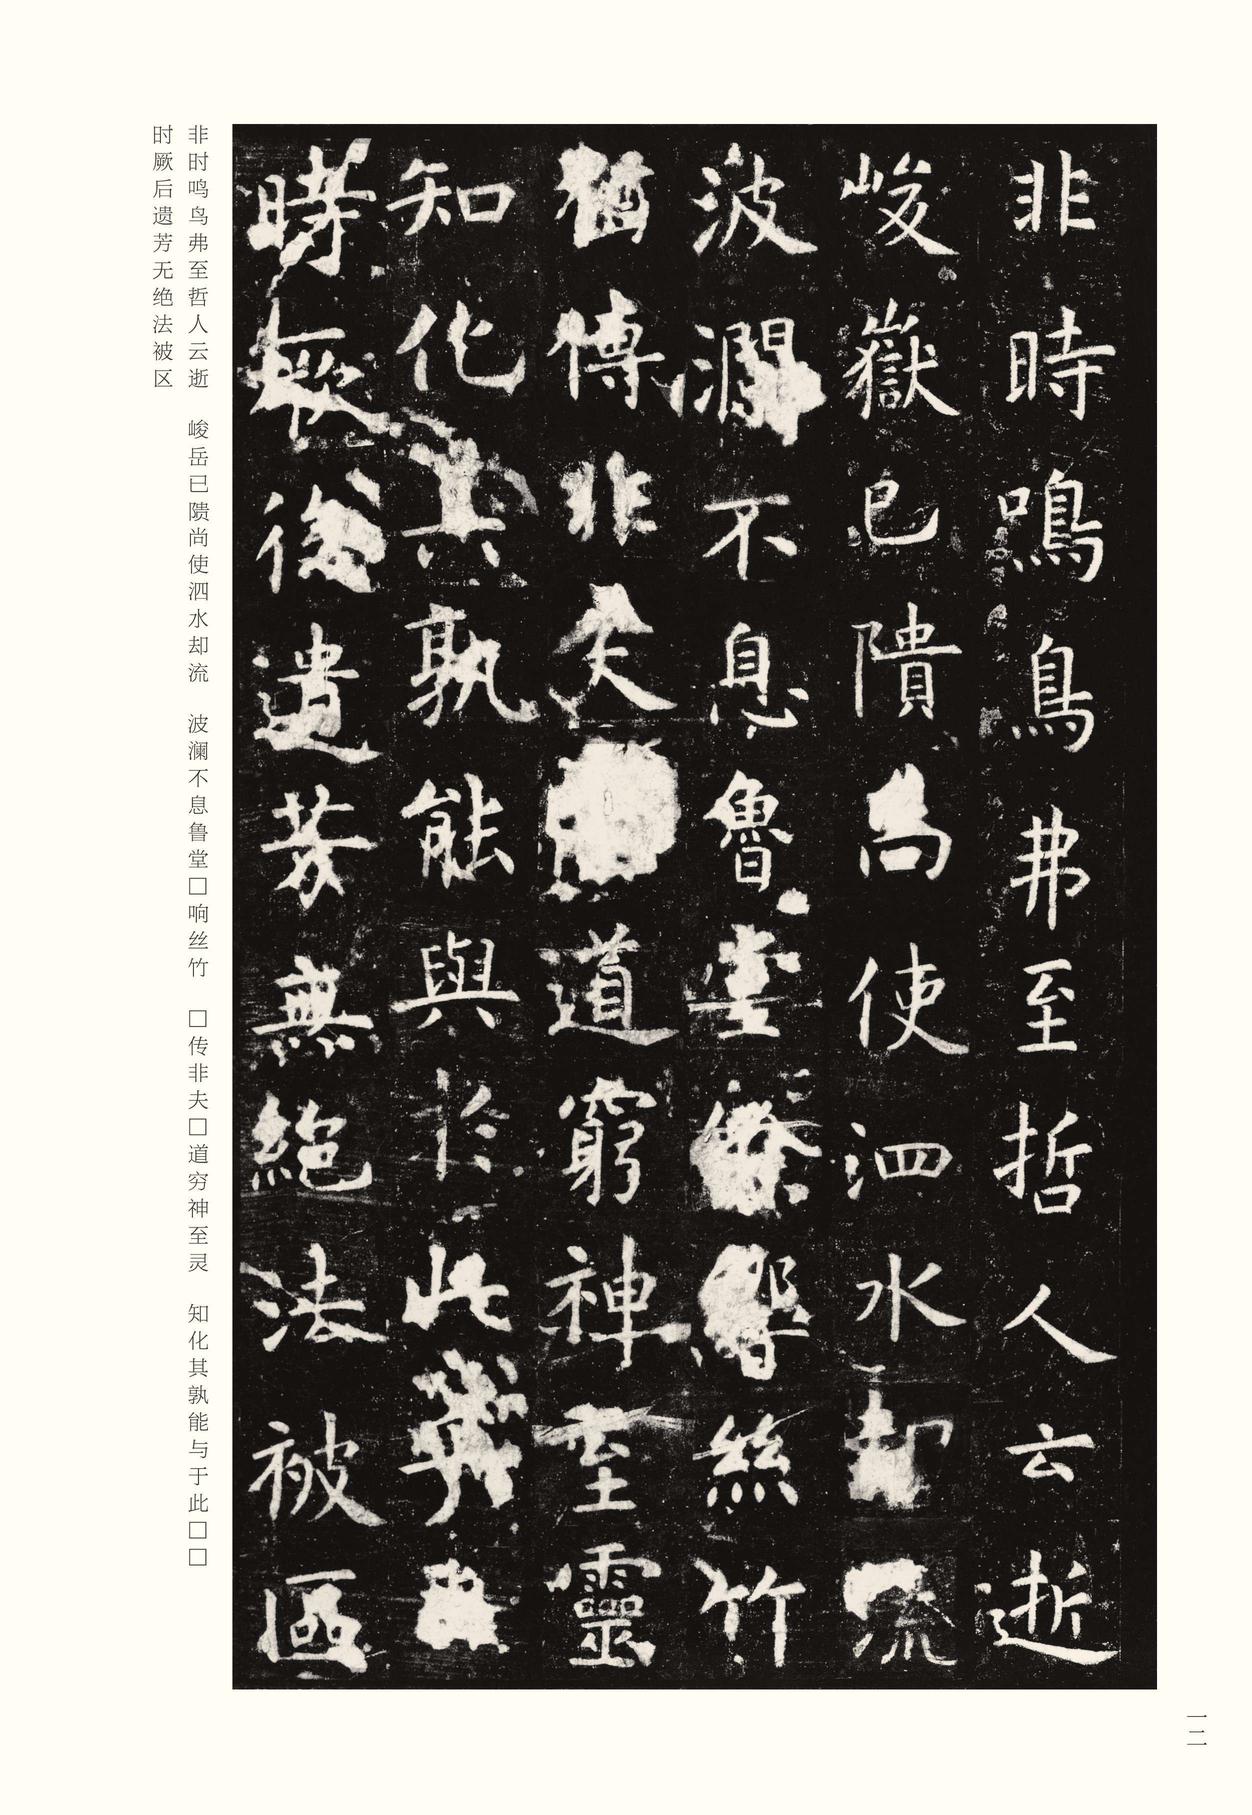 非時鳴鳥弗至哲人云逝
峻嶽已隤尚使泗水却流
波瀾不息魯堂餘響絲竹
猶傳非夫道窮神至靈
知化其孰能與於此
時厥後遺芳無絕法被區
非时鸣鸟弗至哲人云逝　峻岳已隤尚使泗水却流　波澜不息鲁堂□响丝竹　□传非夫□道穷神至灵　知化其孰能与于此□□
时厥后遗芳无绝法被区
一二